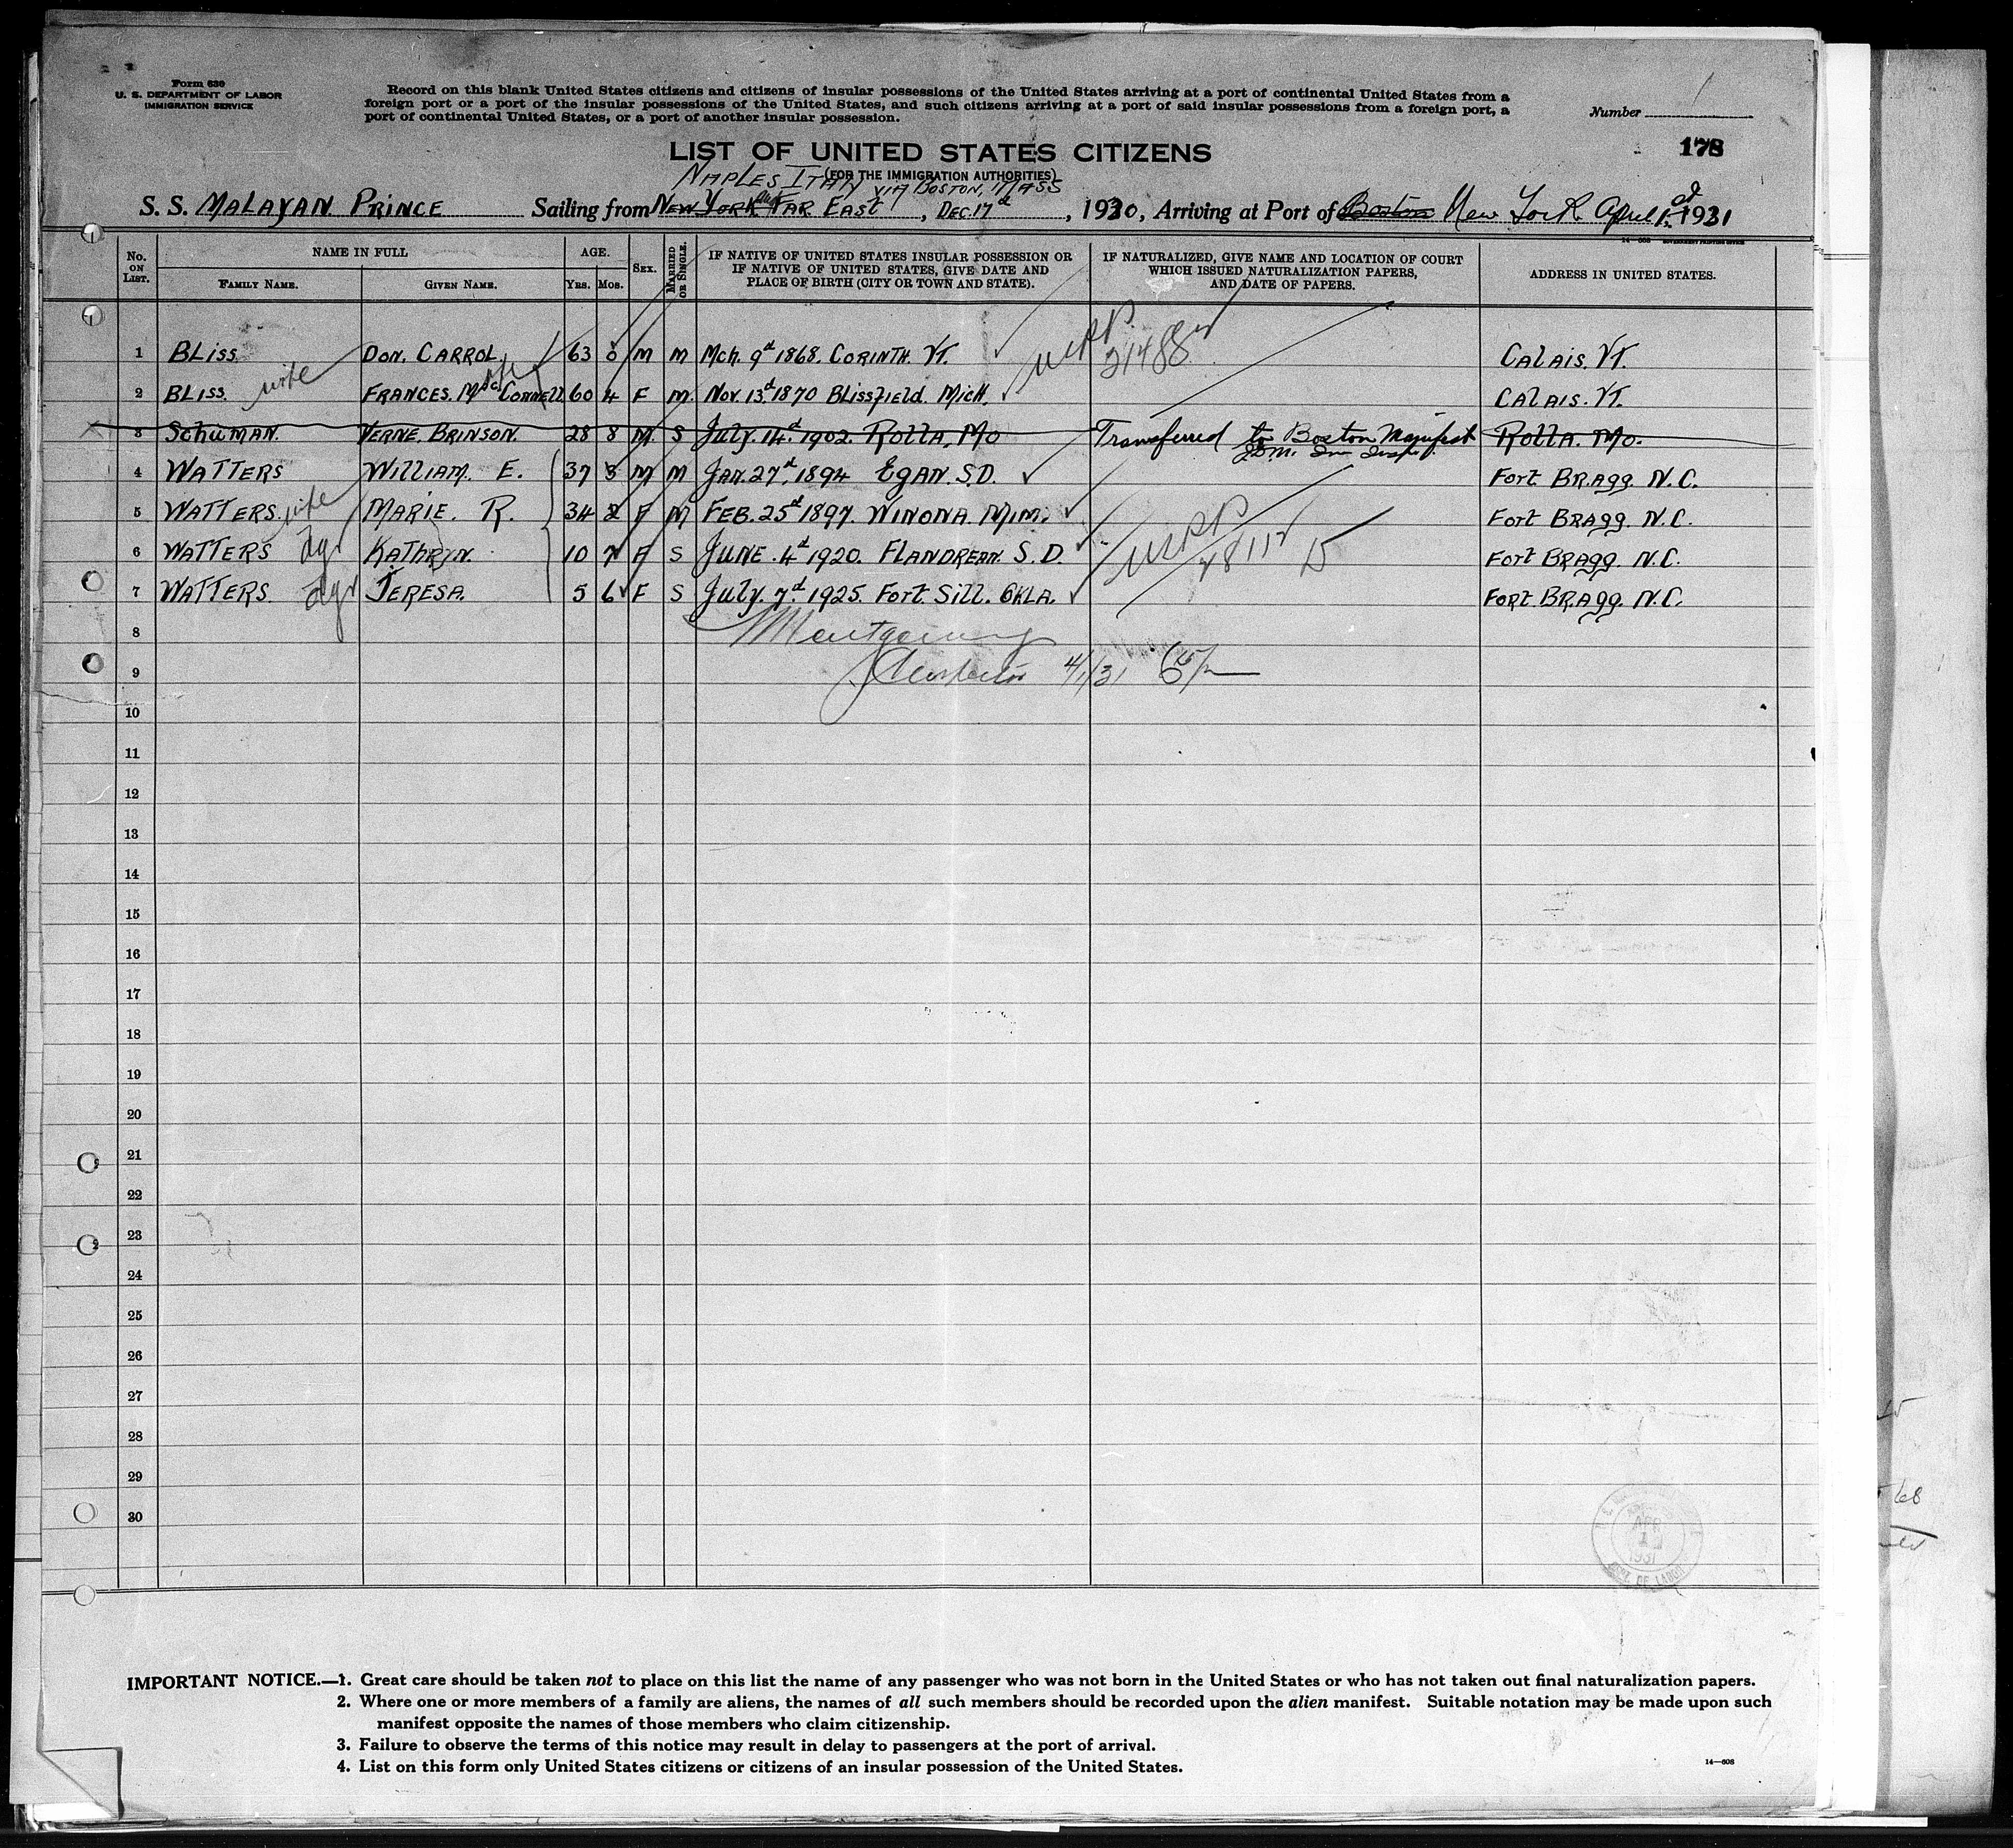 Form 630
U. S. DEPARTMENT OF LABOR
IMMIGRATION SERVICE
Record on this blank United States citizens and citizens of insular possessions of the United States arriving at a port of continental United States from a
foreign port or a port of the insular possessions of the United States, and such citizens arriving at a port of said insular possessions from a foreign port, a
port of continental United States, or a port of another insular possession.
Number 1
178
LIST OF UNITED STATES CITIZENS
(FOR THE IMMIGRATION AUTHORITIES)
NAPLES ITALY VIA BOSTON, MASS
S. S. MALAYAN PRINCE Sailing from New York and FAR EAST, DEC. 17d, 1930, Arriving at Port of Boston New York April 1st 1931
No. ON LIST. NAME IN FULL FAMILY NAME. GIVEN NAME. AGE. YRS. MOS. SEX. MARRIED OR SINGLE. IF NATIVE OF UNITED STATES INSULAR POSSESSION OR IF NATIVE OF UNITED STATES, GIVE DATE AND PLACE OF BIRTH (CITY OR TOWN AND STATE). IF NATURALIZED, GIVE NAME AND LOCATION OF COURT WHICH ISSUED NATURALIZATION PAPERS, AND DATE OF PAPERS. ADDRESS IN UNITED STATES.
1 BLISS DON. CARROL. 63 0 M M Mch. 9d 1868. CORINTH. VT. USPP 21488 CALAIS. VT.
2 BLISS. wife FRANCES. McCONNELL 60 4 F M. Nov. 13d 1870 BLISSFIELD. MICH. CALAIS. VT.
3 SCHUMAN. VERNE. BRINSON. 28 8 M. S July. 14d. 1902. ROLLA, MO Transferred to Boston Manifest ROLLA. MO.
4 WATTERS WILLIAM. E. 37 3 M M JAN. 27d. 1894 EGAN. S.D. FORT BRAGG. N.C.
5 WATTERS. wife MARIE. R. 34 2 F M FEB. 25d 1897. WINONA. MIM. FORT BRAGG. N.C.
6 WATTERS dgr KATHRYN. 10 7 F S JUNE. 4d 1920. FLANDREAN. S.D. USPP FORT BRAGG. N.C.
7 WATTERS. dgr TERESA. 5 6 F S July. 7d. 1925. FORT. SILL. OKLA. FORT. BRAGG. N.C.
8 Montgomery
9 Inspector 4/1/31
10
11
12
13
14
15
16
17
18
19
20
21
22
23
24
25
26
27
28
29
30
APR 1 1931
DEPT. OF LABOR
IMPORTANT NOTICE.—1. Great care should be taken not to place on this list the name of any passenger who was not born in the United States or who has not taken out final naturalization papers.
2. Where one or more members of a family are aliens, the names of all such members should be recorded upon the alien manifest. Suitable notation may be made upon such
manifest opposite the names of those members who claim citizenship.
3. Failure to observe the terms of this notice may result in delay to passengers at the port of arrival.
4. List on this form only United States citizens or citizens of an insular possession of the United States.
14—608